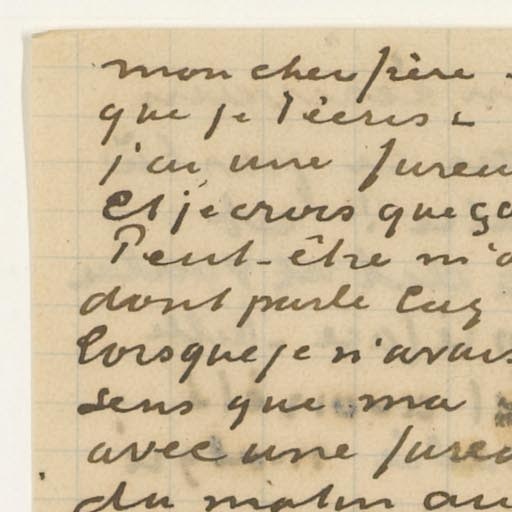 mon cher frère -
que je t'écris -
j'ai une fureu
Et je crois que ça
Peut-être m'a
dont parle Eug
lorsque je n'avais
sens que ma
avec une fureu
du matin au